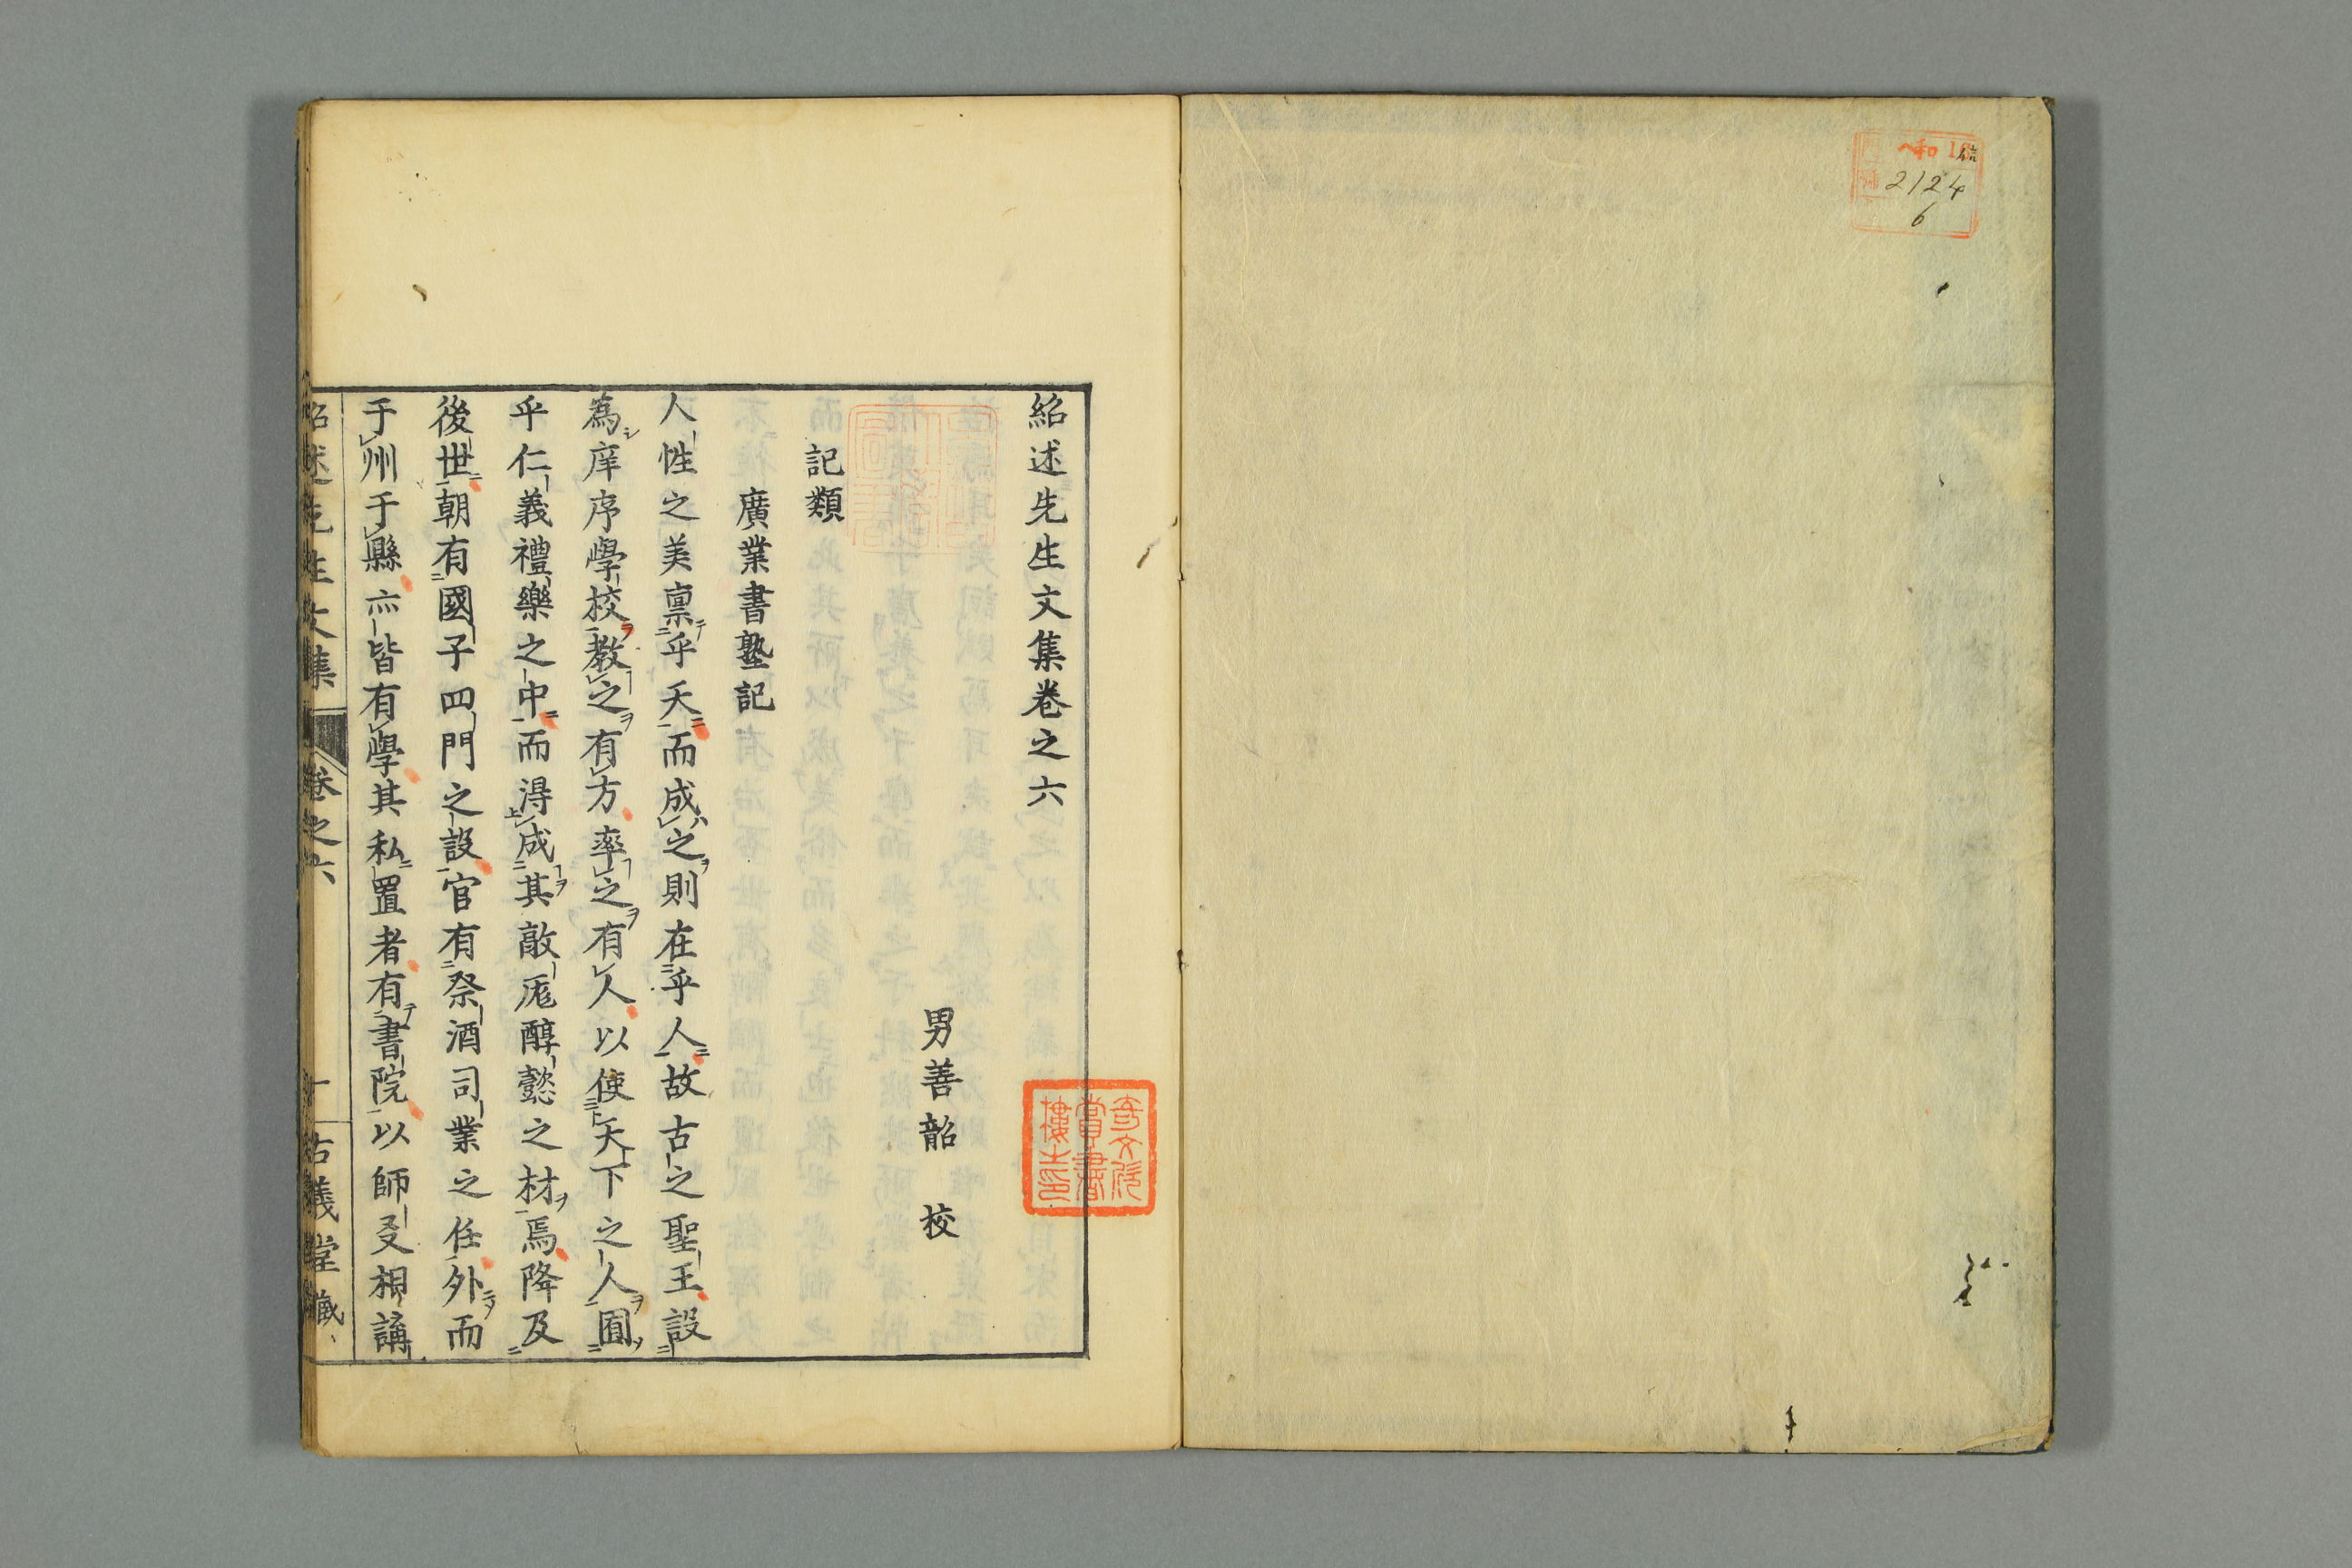 和
2124
6
紹述先生文集卷之六
男善韶 校
奇文欣賞書樓之印
記類
廣業書塾記
人性之美禀乎天而成之則在乎人故古之聖王設
為庠序學校教之有方率之有人以使天下之人囿
乎仁義禮樂之中而得成其敵厖醇懿之材焉降及
後世朝有國子四門之設官有祭酒司業之任外而
于州于縣亦皆有學其私置者有書院以師友相講
紹述先生文集 卷之六 一 古義堂藏